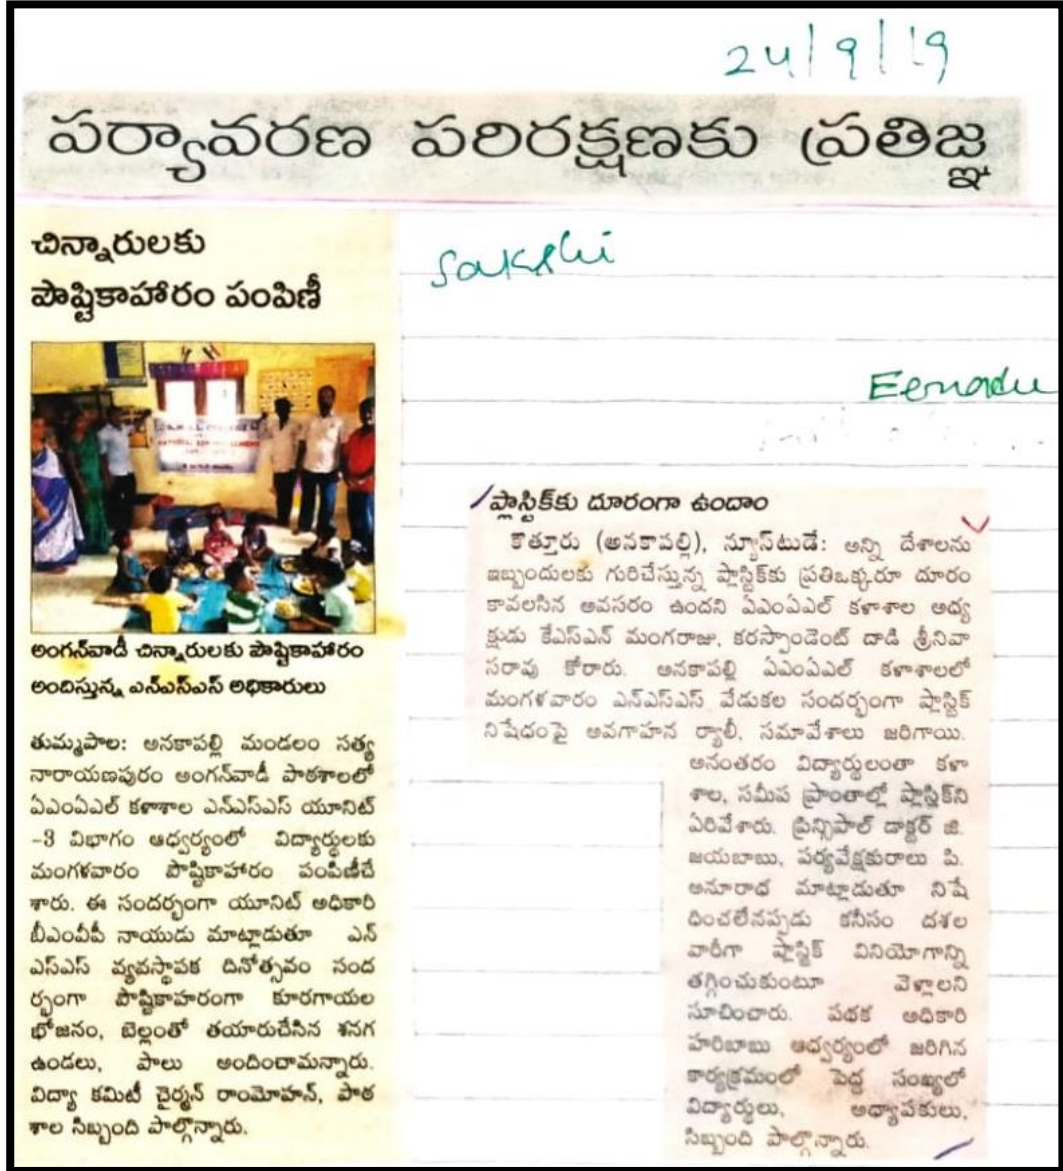 24/9/19
పర్యావరణ పరిరక్షణకు ప్రతిజ్ఞ
చిన్నారులకు
పౌష్టికాహారం పంపిణీ
Sakshi
Eenadu
అంగన్‌వాడీ చిన్నారులకు పౌష్టికాహారం
అందిస్తున్న ఎన్ఎస్ఎస్ అధికారులు
తుమ్మపాల: అనకాపల్లి మండలం సత్య
నారాయణపురం అంగన్‌వాడీ పాఠశాలలో
ఏఎంఏఎల్ కళాశాల ఎన్ఎస్ఎస్ యూనిట్
-3 విభాగం ఆధ్వర్యంలో విద్యార్థులకు
మంగళవారం పౌష్టికాహారం పంపిణీచే
శారు. ఈ సందర్భంగా యూనిట్ అధికారి
బీఎంవీపీ నాయుడు మాట్లాడుతూ ఎన్
ఎస్ఎస్ వ్యవస్థాపక దినోత్సవం సంద
ర్భంగా పౌష్టికాహరంగా కూరగాయల
భోజనం, బెల్లంతో తయారుచేసిన శనగ
ఉండలు, పాలు అందించామన్నారు.
విద్యా కమిటీ చైర్మన్ రాంమోహన్, పాఠ
శాల సిబ్బంది పాల్గొన్నారు.
ప్లాస్టిక్‌కు దూరంగా ఉందాం
కొత్తూరు (అనకాపల్లి), న్యూస్‌టుడే: అన్ని దేశాలను
ఇబ్బందులకు గురిచేస్తున్న ప్లాస్టిక్‌కు ప్రతిఒక్కరూ దూరం
కావలసిన అవసరం ఉందని ఏఎంఏఎల్ కళాశాల అధ్య
క్షుడు కేఎస్ఎన్ మంగరాజు, కరస్పాండెంట్ దాడి శ్రీనివా
సరావు కోరారు. అనకాపల్లి ఏఎంఏఎల్ కళాశాలలో
మంగళవారం ఎన్ఎస్ఎస్ వేడుకల సందర్భంగా ప్లాస్టిక్
నిషేధంపై అవగాహన ర్యాలీ, సమావేశాలు జరిగాయి.
అనంతరం విద్యార్థులంతా కళా
శాల, సమీప ప్రాంతాల్లో ప్లాస్టిక్‌ని
ఏరివేశారు. ప్రిన్సిపాల్ డాక్టర్ జి.
జయబాబు, పర్యవేక్షకురాలు పి.
అనూరాధ మాట్లాడుతూ నిషే
ధించలేనప్పడు కనీసం దశల
వారీగా ప్లాస్టిక్ వినియోగాన్ని
తగ్గించుకుంటూ వెళ్లాలని
సూచించారు. పథక అధికారి
హరిబాబు ఆధ్వర్యంలో జరిగిన
కార్యక్రమంలో పెద్ద సంఖ్యలో
విద్యార్థులు, అధ్యాపకులు,
సిబ్బంది పాల్గొన్నారు.